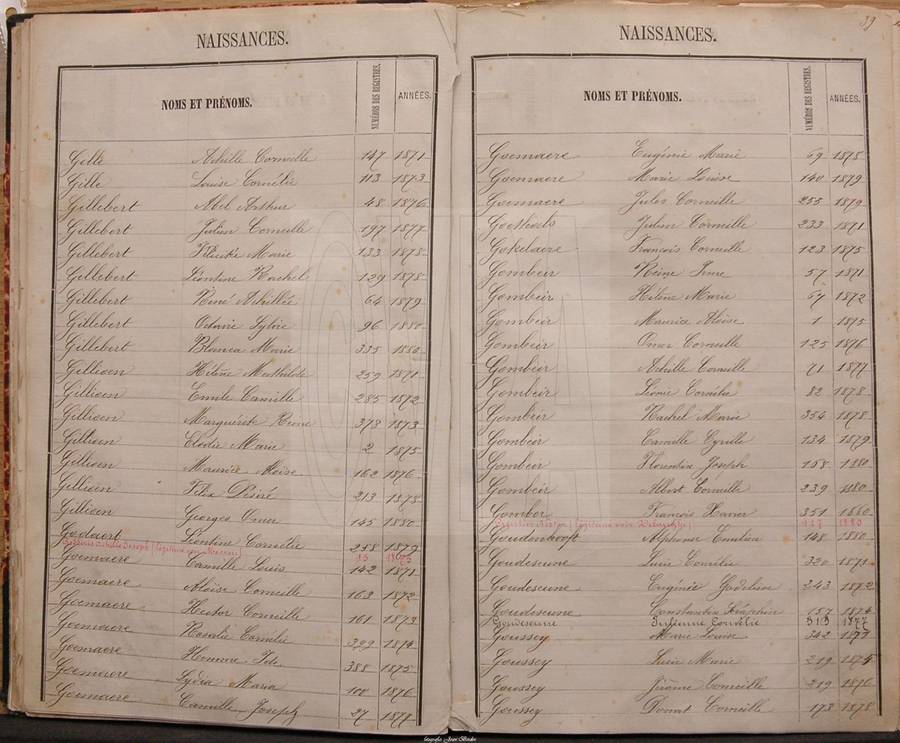 NAISSANCES.
NOMS ET PRÉNOMS. NUMÉROS DES REGISTRES. ANNÉES.
Gille Achille Corneille 147 1871
Gille Louise Cornélie 113 1873
Gillebert Abel Arthur 48 1876
Gillebert Julien Corneille 197 1877
Gillebert Félicité Marie 133 1878
Gillebert Léontine Rachel 129 1878
Gillebert René Achille 64 1879
Gillebert Octavie Sylvie 96 1880
Gillebert Blanca Marie 335 1880
Gillioen Hélène Mathilde 259 1871
Gillioen Emile Camille 285 1872
Gillioen Marguérite Reine 373 1873
Gillioen Elodie Marie 2 1875
Gillioen Maurice Aloïse 162 1876
Gillioen Félix Désiré 213 1878
Gillioen Georges Omer 145 1880
Godaert Léontine Cornélie 258 1879
Joseph (légitimé voir 1873
Goemaere Camille Louis 142 1871
Goemaere Aloïse Corneille 163 1872
Goemaere Hector Corneille 161 1873
Goemaere Rosalie Cornélie 329 1874
Goemaere Honoré 388 1875
Goemaere Lydia Maria 108 1876
Goemaere Camille Joseph 27 1877
39
NAISSANCES.
NOMS ET PRÉNOMS. NUMÉROS DES REGISTRES. ANNÉES.
Goemaere Eugénie Marie 69 1878
Goemaere Marie Louise 140 1879
Goemaere Jules Corneille 255 1879
Goethals Julien Corneille 233 1871
Gokelaere François Corneille 123 1875
Gombeir Reine 57 1871
Gombeir Hélène Marie 67 1872
Gombeir Maurice Aloïse 1 1875
Gombeir Omer Corneille 125 1876
Gombeir Achille Corneille 71 1877
Gombeir Léonie Cornélie 82 1878
Gombeir Rachel Marie 354 1878
Gombeir Camille Cyrille 134 1879
Gombeir Florentin Joseph 158 1880
Gombeir Albert Corneille 239 1880
Gombeir François Xavier 351 1880
(légitimé voir 1880
Goudenhooft Alphonse Emilien 148 1880
Goudeseune Lucie Cornélie 320 1871
Goudeseune Eugénie 243 1872
Goudeseune Constantin Séraphin 157 1874
Goudeseune Julienne Cornélie 313 1877
Goussey Marie Louise 342 1873
Goussey Lucie Marie 219 1874
Goussey Jérôme Corneille 219 1876
Goussey Donat Corneille 173 1878